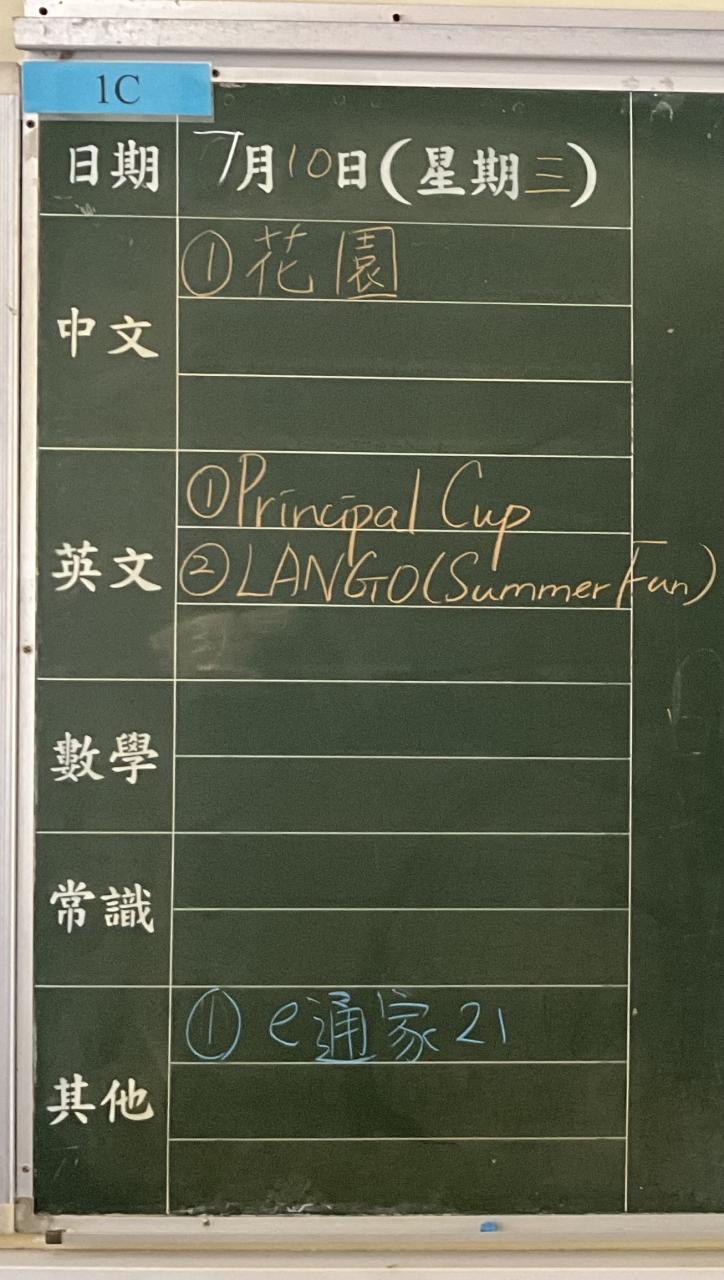 1C
日期 7月10日(星期三)
中文 ①花園
英文 ①Principal Cup
②LANGO(Summer Fun)
數學
常識
其他 ①e通家21